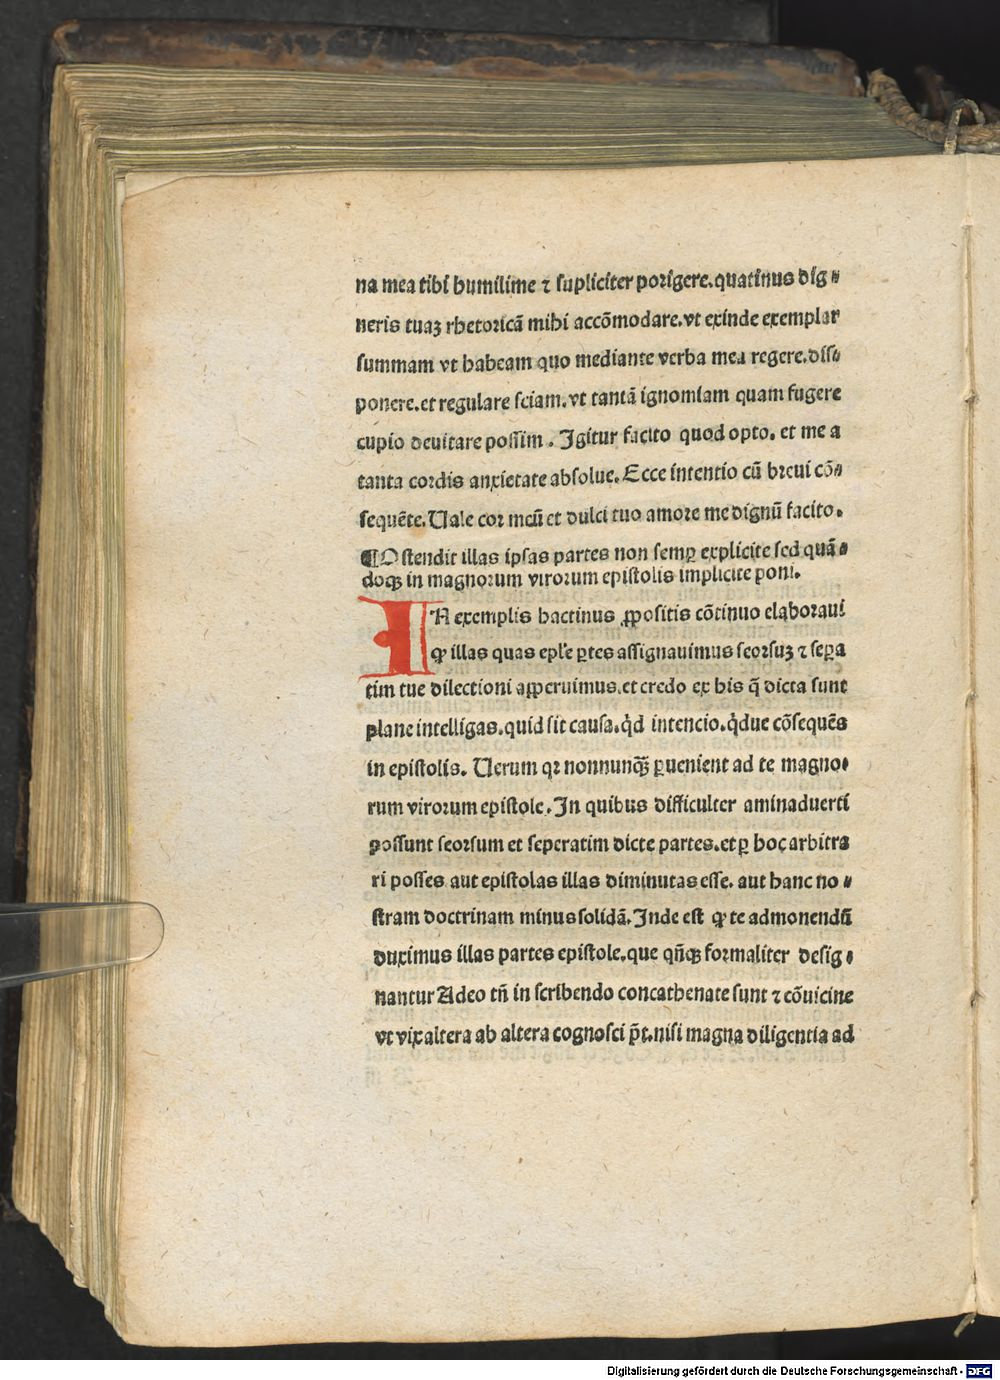 na mea tibi humilime ⁊ supliciter porigere. quatinus dig⸗
neris tuaꝫ rhetoricā mihi accōmodare. vt exinde exemplar
summam vt habeam quo mediante verba mea regere. dis⸗
ponere. et regulare sciam. vt tantā ignomiam quam fugere
cupio deuitare possim. Igitur facito quod opto. et me a
tanta cordis anxietate absolue. Ecce intentio cū breui cō⸗
sequēte. Uale cor meū et dulci tuo amore me dignū facito.
¶Ostendit illas ipsas partes non semꝑ explicite sed quā⸗
doqꝫ in magnorum virorum epistolis implicite poni.
IN exemplis hactinus ꝓpositis cōtinuo elaboraui
ꝙ illas quas eple ꝑtes assignauimus seorsuꝫ ⁊ seꝑa
tim tue dilectioni aꝑperuimus. et credo ex his q̄ dicta sunt
plane intelligas. quid sit causa. q̇d intencio. q̇due cōsequēs
in epistolis. Uerum qꝛ nonnunqꝫ ꝑuenient ad te magno⸗
rum virorum epistole. In quibus difficulter aminaduerti
possunt seorsum et seperatim dicte partes. et ꝑ hoc arbitra
ri posses aut epistolas illas diminutas esse. aut hanc no⸗
stram doctrinam minus solidā. Inde est ꝙ te admonendū
duximus illas partes epistole. que qn̄qꝫ formaliter desig⸗
nantur Adeo tn̄ in scribendo concathenate sunt ⁊ cōuicine
vt vix altera ab altera cognosci p̄t. nisi magna diligentia ad
Digitalisierung gefördert durch die Deutsche Forschungsgemeinschaft - DFG